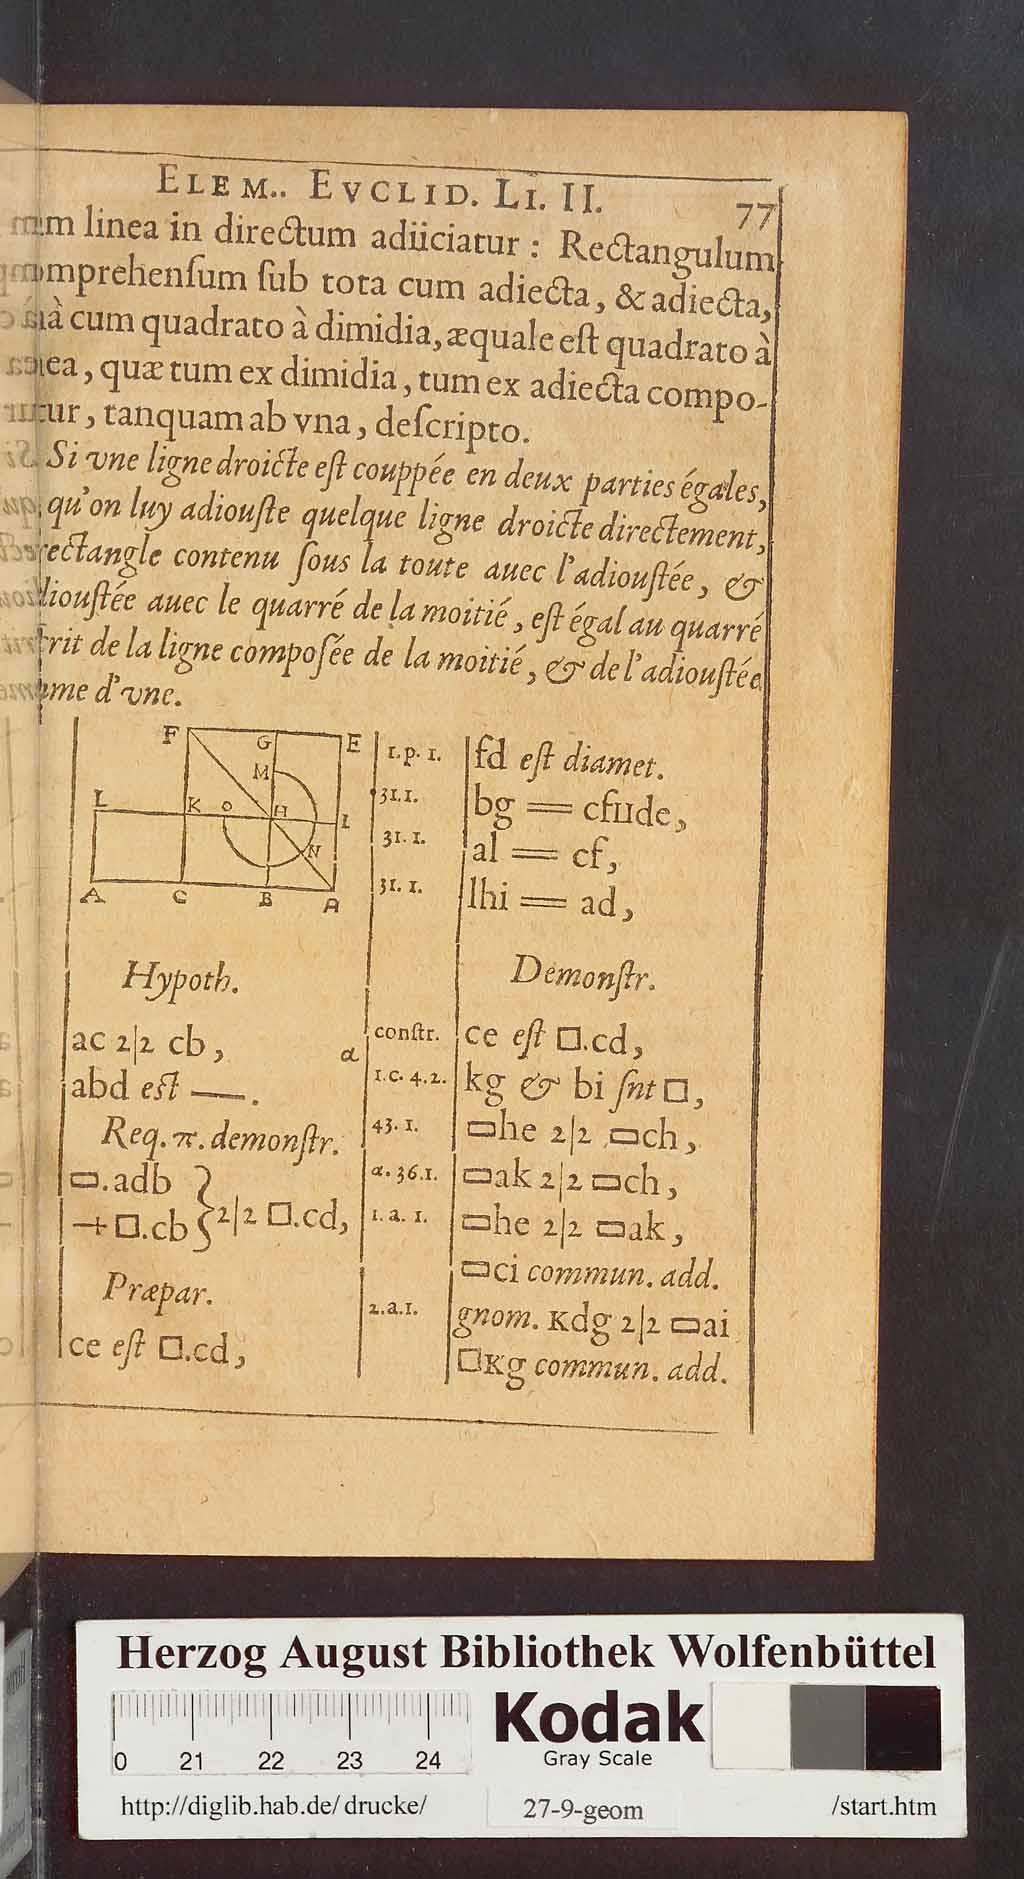 ELEM.. EVCLID. LI. II. 77
linea in directum adiiciatur : Rectangulum
omprehensum sub tota cum adiecta, & adiecta,
à cum quadrato à dimidia, æquale est quadrato à
ea, quæ tum ex dimidia, tum ex adiecta compo-
tur, tanquam ab vna, descripto.
Si vne ligne droicte est couppée en deux parties égales,
qu'on luy adiouste quelque ligne droicte directement,
rectangle contenu sous la toute auec l'adioustée, &
dioustée auec le quarré de la moitié, est égal au quarré
crit de la ligne composée de la moitié, & de l'adioustée
me d'vne.
F G E
M
L K O H I
N
A C B A
1.p. 1. fd est diamet.
31.1. bg = cfIIde,
31. 1. al = cf,
31. 1. lhi = ad,
Hypoth.
ac 2|2 cb,
abd est —.
Req. π. demonstr.
▭.adb
+ □.cb } 2|2 □.cd,
Præpar.
ce est □.cd,
Demonstr.
constr. ce est □.cd,
α 1.c. 4.2. kg & bi snt □,
43. 1. ▭he 2|2 ▭ch,
α. 36.1. ▭ak 2|2 ▭ch,
1. a. 1. ▭he 2|2 ▭ak,
▭ci commun. add.
2.a.1. gnom. Kdg 2|2 ▭ai
□Kg commun. add.
Herzog August Bibliothek Wolfenbüttel
0 21 22 23 24
Kodak
Gray Scale
http://diglib.hab.de/drucke/ 27-9-geom /start.htm